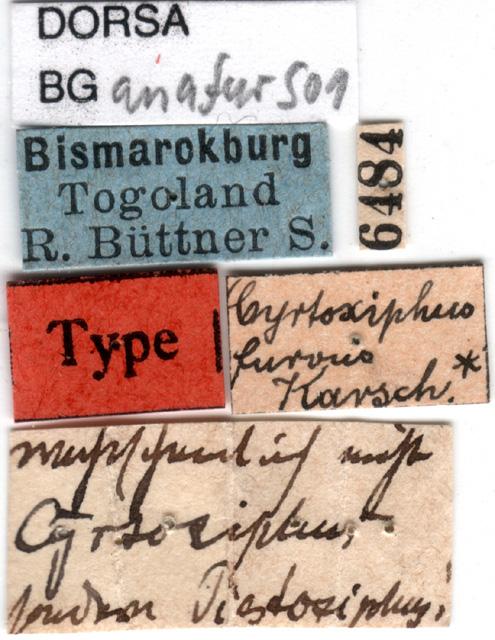 DORSA
BG anafurS01
Bismarckburg
Togoland
R. Büttner S.
6484
Type
Cyrtoxiphus
furvus
Karsch.*
wahrscheinlich nicht
Cyrtoxiphus
sondern